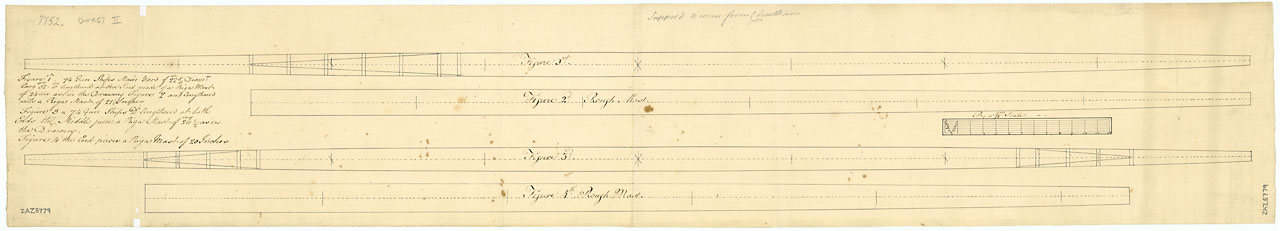 7752. Box 67 II
Supposed to come from Chatham
Figure 1st
Figure 1st 74 Gun Ships Main Yard of
of 24 in as in the Drawing Figure 2 and lengthened
with a Riga Mast of 21 Inches
Figure 3 a 74 Gun Ships Do lengthened at both
Ends the Middle piece a Riga Mast of as in
the Drawing.
Figure 4 the End pieces a Riga Mast of 20 Inches
Figure 2d Rough Mast.
Scale
Figure 3d
Figure 4th Rough Mast.
ZAZ6779
ZAZ6779